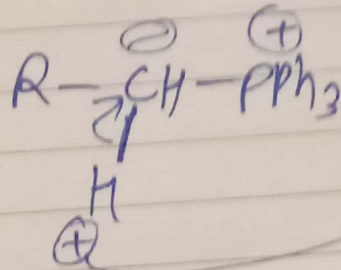 ⊖ ⊕
R—CH—PPh₃
H
⊕